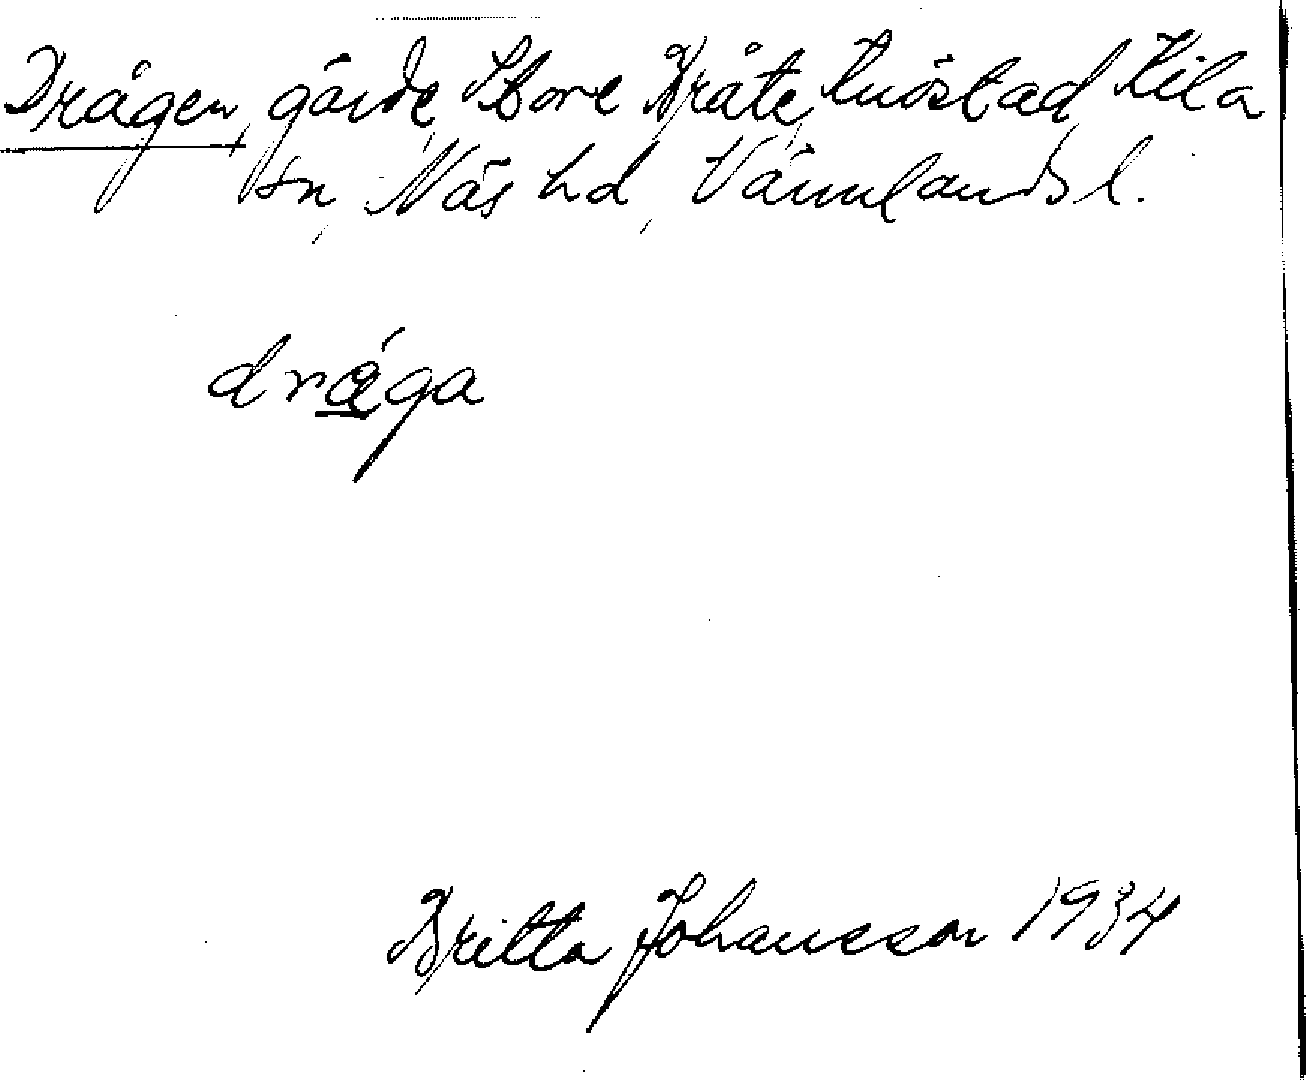 Drågen, gärde, Store Bråte, Knöstad, Kila
sn, Näs hd, Värmlands l.
drǻga
Britta Johansson 1934